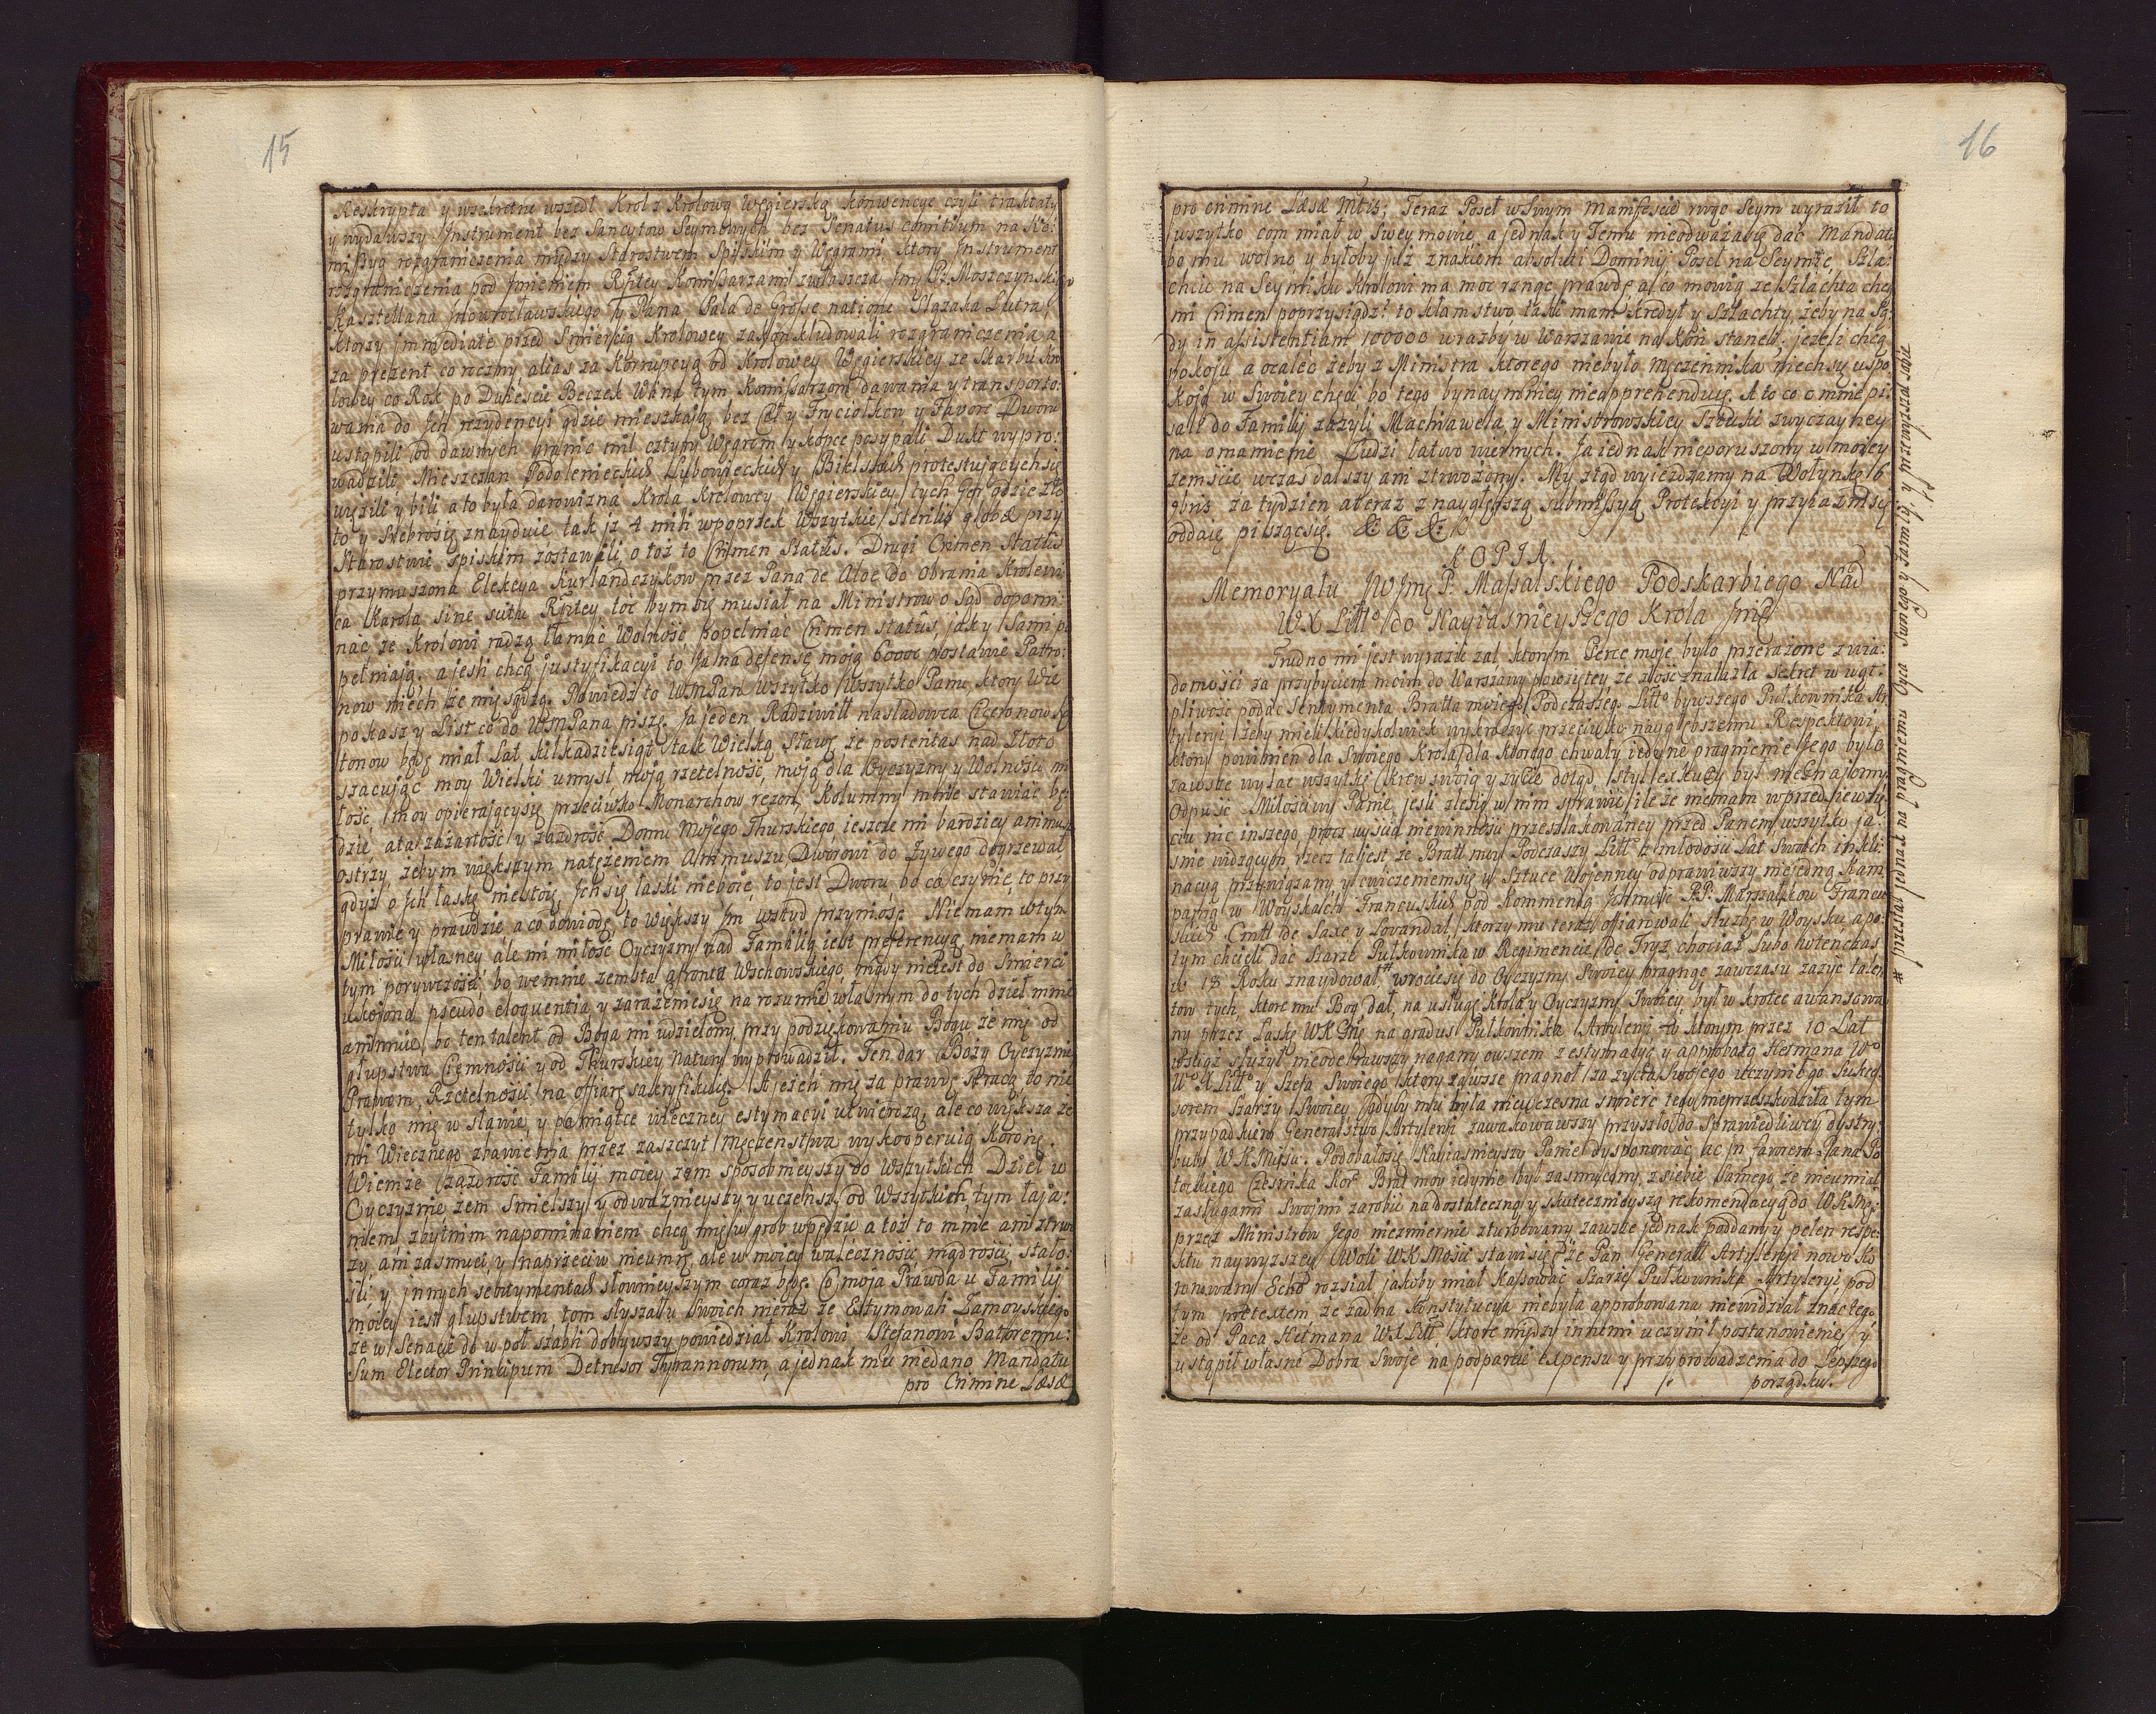 15
Reskrypta y wsekretne wszedł Krol z Krolową Węgierską konwencye czyli traktaty
y wydawszy Instrument bez Sancytow Seymowych bez Senatus consilium na Ko:
missyą rozgraniczenia między Starostwem Spiskim y Węgrami, ktory Instrument
rozgraniczenia pod Imieniem Rptey Komissarzami zwłaszcza Jmę Pz. Moszczynskie
Kasztellana Inowrocławskiego y Pana Pala de Grosse natione Slązaka Lutra
ktorzy immediate przed Smiercią Krolowey zakonkludowali rozgraniczenia a
za prezent coroczny alias za Korrupcyą od Krolowey Węgierskiey ze Skarbu Kro
lowey co Rok po Dwiescie Beczek Wina tym Komissarzom dawania y transporto:
wania do Ich rezydencyi gdzie mieszkaią bez Cła y
ustąpili od dawnych granic mil cztyry Węgrom y kopce posypali Dukt wypro:
wadzili Mieszczan Podolenieckich Lubowieckich y protestuiącychsię
więzili y bili a to była darowizna Krola Krolowey Węgierskiey tych Gor gdzie zło
to y srebrosię znayduie tak iz 4 mili wpoprzek Wszytkie Sterilis glebæ przy
Starostwie Spiskim zostawili, o toż to Crimen Status. Drugi Crimen Status
przymuszona Elekcya Kurlandczykow przez Pana de Aloe do Obrania Krolewi
ca Karola sine scitu Rptey toć bym się musiał na Ministrow o Sąd dopomi:
nać ze Krolowi radzą łamać Wolność popełniać Crimen status, jaky Sami po
pełniają. a jesli chcą justyfikacyi to Ja na defensę moją 60000 postawie Patro:
now niech że mię sądzą. Powiedz to WMPan Wszytko Wszytko Panu, ktory Wie
pokaszy List co do WMPana piszę. Ja jeden Radziwiłł nasladowca Ciceronow Ka
tonow będę miał Lat kilkadziesiąt tak Wielką Sławę ze posteritas nad Złoto
szacując moy Wielki umysł moją rzetelność, moją dla Oyczyzny y Wolności mi
łość, y moy opierającysię przeciwko Monarchow rezon, Kolumny mnie stawiać bę
dzie, ata zazartość y zazdrość Domu Mojego Thurskiego ieszcze mi bardziey animusz
ostrzy, żebym większym natężeniem Animuszu Dworowi do Żywego dogrzewał,
gdyż o Ich łaskę niestoię, Ich się łaski nieboię, to jest Dworu bo co czynię, to przy
prawie y prawdzie a co dowiodę, to większy Im wstyd przyniosę. Niemam wtym
Miłości własney ále mi miłość Oyczyzny nad Familią iest preferencyą niemam w
tym porywczości bo wemnie zemsta afronta Wschowskiego, nigdy nieiest do Smierci
ukojona, pseudo eloquentia y zarażeniesię na rozumie własnym do tych dzieł mnie
animuie, bo ten talent od Boga mi udzielony przy podziękowaniu Bogu że mię od
głupstwa Ciemności y od Thurskiey Natury wyprowadził. Ten dar Boży Oyczyznie
Prawom, Rzetelności na offiarę sakryfikuię. A jezeli mię za prawdę stracą to nie
tylko mię w sławie y pamiątce wieczney estymacyi utwierdzą, ale co większa że
mi Wiecznego zbawienia przez zaszczyt Męczenstwa wykooperuią Koronę.
Wiemże zazdrość Familij moiey żem sposobnieyszy do Wszytkich Dzieł w
Oyczyznie żem Smielszy y odważnieyszy y uczeńszy od Wszytkich, tym łaja:
niem, zbytnim napominaniem chcą mię w grob wpędzić a toż to mnie ani strwo
ży, ani zasmuci, y naprzeciw nieumrę, ale w moiey waleczności mądrości, stało:
sci y innych sentymentach słownieyszym coraz będę. Co moja Prawda u Familij
moiey iest głupstwem, tom słyszał u Swoich nieraz że Estymowali Zamoyskiego
że w Senacie do w poł szabli dobywszy powiedział Krolowi Stefanowi Batoremu:
Sum Elector Principum Detrusor Tyrannorum, a jednak mu niedano Mandatu
pro Crimine Læsæ
16
pro crimine Læsæ Mtis; Teraz Poseł wSwym Manifescie rwąc Seym wyraził to
wszytko com miał w Swey mowie, a jednak y Temu nieodważąsię dać Mandatu
bo mu wolno, y byłoby już znakiem absoluti Dominij Poseł na Seymie, Szla:
chcic na Seymiku Krolowi ma moc rznąć prawdę, a co mowią ze Szlachta chcą
mi Crimen poprzysiądz: to kłamstwo, taki mam Kredyt u Szlachty, żeby na Są:
dy in assistentiam 100000 wrazby w Warszawie na Koń stanęło. jezeli chcą
pokoju a ocaleć żeby z Ministra ktorego niebyło męczennika niechsię uspo
koją w Swoiey chęci bo tego bynaymniey nieapprehenduię. A to co o mnie pi:
sali do Familij zażyli Machiawela y Ministrowskiey Sztuki zwyczayney
na omamienie Ludzi łatwo wiernych. Ja jednak nieporuszony w moiey
zemście wczas dalszy ani ztrwożony. My ztąd wyieżdzamy na Wołyńską 6
9bris za tydzien a teraz z naygłębszą submissyą Protekcyi y przyiazni się
oddaię piszącsię. &: &: &:
KOPIA
Memoryału JWJmę P. Massalskiego Podskarbiego Nad
WXLittº do Nayiasnieyszego Krola Jmci
Trudno mi jest wyrazić żal, ktorym Serce moje było przerażone zwia:
domości za przybyciem moim do Warszawy powziętey że złość znalazła Sekret w wąt:
pliwość podać Sentymenta Bratta moiego Podczaszeg. Littº bywszego Pułkownika Ar
tylerij, żeby mieli kiedykolwiek wykroczyć przeciwko naygłębszemu Respektowi
ktory powinien dla Swoiego Krola, dla ktorego chwały iedyne pragnienie Jego było
zawsze wylać wszytkę Krew swoię y życie dotąd, Styl exkuzy był mi nieznajomy
Odpuść Miłościwy Panie, jesli zlesię w nim sprawie, ile że niemam wprzedsięwzię
ciu nic inszego, procz wyscia niewinności przeszlakowaney przed Panem wszytko ja:
sne widzącym, rzecz ta jest że Bratt moy Podczaszy Littº z młodości Lat swoich inkli:
nacyą przywiązany, y cwiczeniemsię w Sztuce Wojenney odprawiwszy niejedną Kam
panią w Woyskach Francuskich pod kommendą Jchmciow P.P. Marszałkow Francu
skich Cmtt de Saxe y Lovendal, ktorzy mu teraz offiarowali służbę w Woysku, a po:
tym chcieli dać Szarżę Pułkownika w Regimencie de Fryz, chociaż Lubo wtenczas
w 18 Roku znaydował # wrociłsię do Oyczyzny Swoiey pragnąc zawczasu zażyć talen
tow tych, ktore mu Bog dał, na usługę Krola y Oyczyzny Swoiey, był w krotce awansowa
ny przez Łaskę WKMci na gradus Pułkownika Artylerij w ktorym przez 10 Lat
wsciąż służył nieodebrawszy nagany owszem z estymacyą y approbatą Hetmana Wº
WXLittº y Szefa Swoiego, ktory zawsze pragnoł za życia Swojego uczynić go Sukce:
sorem Szarży Swoiey, gdyby mu była niewczesna smierc tego nieprzeszkodziła tym
przypadkiem Generalstwo Artylerij zawakowawszy przyszło do Sprawiedliwey dystry:
buty WKMosci. Podobałosię Nayiasnieyszy Panie dysponować ac in favorem Pana Po
tockiego Czesnika Korº Brat moy iedynie był zasmucony, z siebie Samego, że nieumiał
zasługami Swojmi zarobić na dostateczną y skutecznieyszą rekomendacyą do WKMci:
przez Ministrow Jego niezmiernie zturbowany zawsze jednak poddany y pełen respe:
ktu naywyzszey Woli WKMosci stawisię że Pan Generał Artyleryi nowo Kº
ronowany Echo rozsiał jakoby miał Kassować Szarżę Pułkownika Artyleryi, pod
tym pretextem, że żadna Konstytucya niebyła approbowana niewidział znać tego
że od Paca Hetmana WXLittº ktore między innemi uczynił postanowienie, y
ustąpił własne Dobra Swoje na podparcie Expensu y przyprowadzenia do Lepszego
porządku.
# przestał jednak na pragnieniu Oyca Swiego y Familij, y przeniosszy sobie